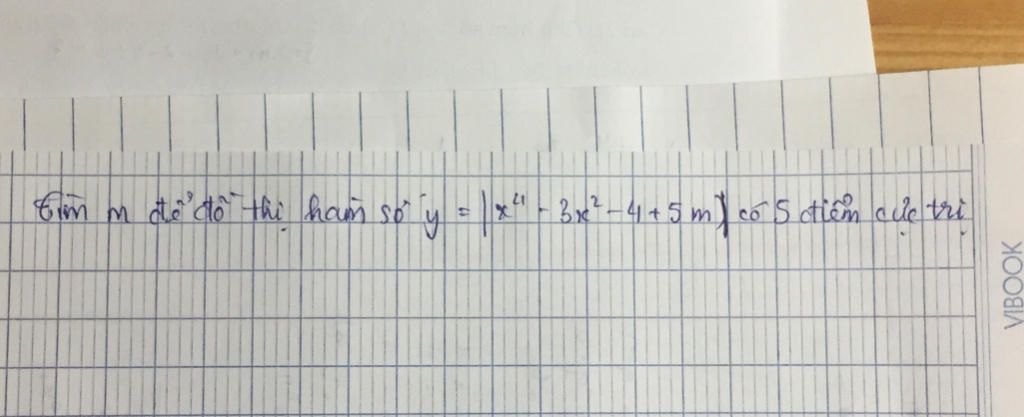 tìm m để đồ thị hàm số y = |x⁴ - 3x² - 4 + 5m| có 5 điểm cực trị
VIBOOK